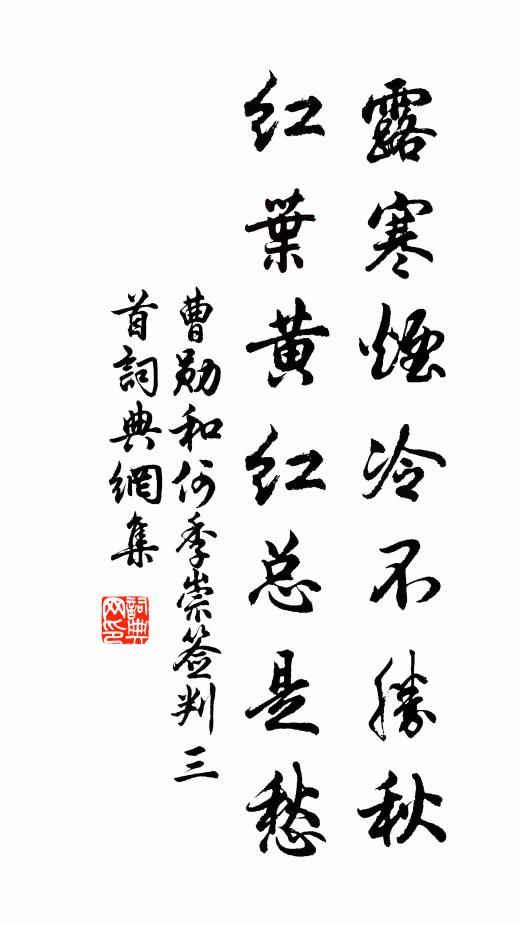 露寒煙冷不勝秋
红葉黄红总是愁
曹勛和何季崇签判三
首詞典網集
詞典
网印